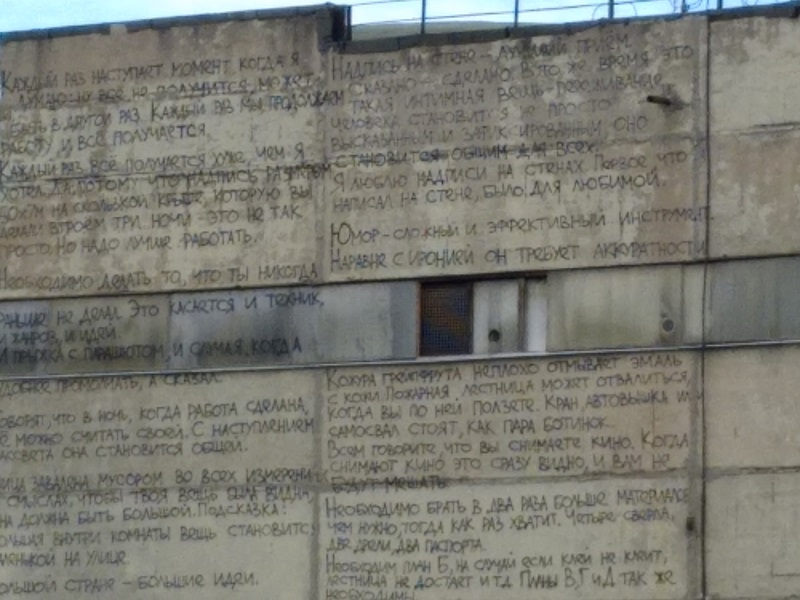 Каждый раз наступает момент когда я
думаю: ну всё, не получится, может
быть в другой раз. Каждый раз мы продолжаем
работу и всё получается.
Каждый раз всё получается хуже, чем я
хотел. Да, потому что надпись размером
на скользкой крыше, которую вы
делали втроем три ночи – это не так
просто. Но надо лучше работать.
Необходимо делать то, что ты никогда
раньше не делал. Это касается и техник,
и жанров, и идей.
И прыжка с парашютом, и случая, когда
удобнее промолчать, а сказал.
Говорят, что в ночь, когда работа сделана,
её можно считать своей. С наступлением
рассвета она становится общей.
Улица завалена мусором во всех измерениях
и смыслах, чтобы твоя вещь была видна,
она должна быть большой. Подсказка:
большая внутри комнаты вещь становится
маленькой на улице.
Большой стране – большие идеи.
Надпись на стене – лучший приём.
Сказано – сделано. В то же время это
такая интимная вещь – переживание
человека становится не просто
высказанным и зафиксированным оно
становится общим для всех.
Я люблю надписи на стенах. Первое что
написал на стене, было: для любимой.
Юмор – сложный и эффективный инструмент.
Наравне с иронией он требует аккуратности
Кожура грейпфрута неплохо отмывает эмаль
с кожи. Пожарная лестница может отвалиться,
когда вы по ней ползете. Кран, автовышка или
самосвал стоят, как пара ботинок.
Всем говорите, что вы снимаете кино. Когда
снимают кино это сразу видно, и вам не
будут мешать.
Необходимо брать в два раза больше материалов
чем нужно, тогда как раз хватит. Четыре сверла,
две дрели, два паспорта.
Необходим план Б, на случай если клей не клеит,
лестница не достает и т.д. Планы В, Г и Д так же
необходимы.